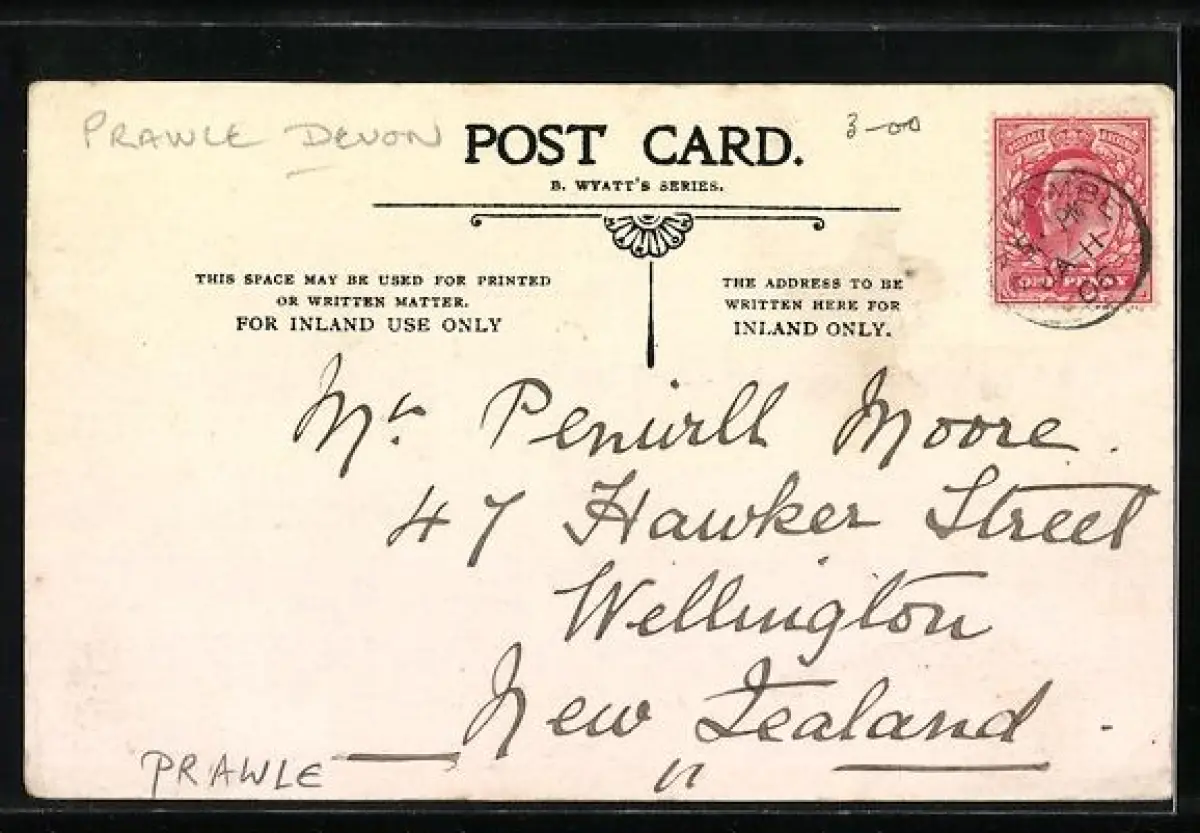 PRAWLE DEVON
POST CARD.
3-00
B. WYATT'S SERIES.
THIS SPACE MAY BE USED FOR PRINTED
OR WRITTEN MATTER.
FOR INLAND USE ONLY
THE ADDRESS TO BE
WRITTEN HERE FOR
INLAND ONLY.
PM
JA 11
06
ONE PENNY
Mr. Penwill Moore.
47 Hawker Street
Wellington
New Zealand.
PRAWLE